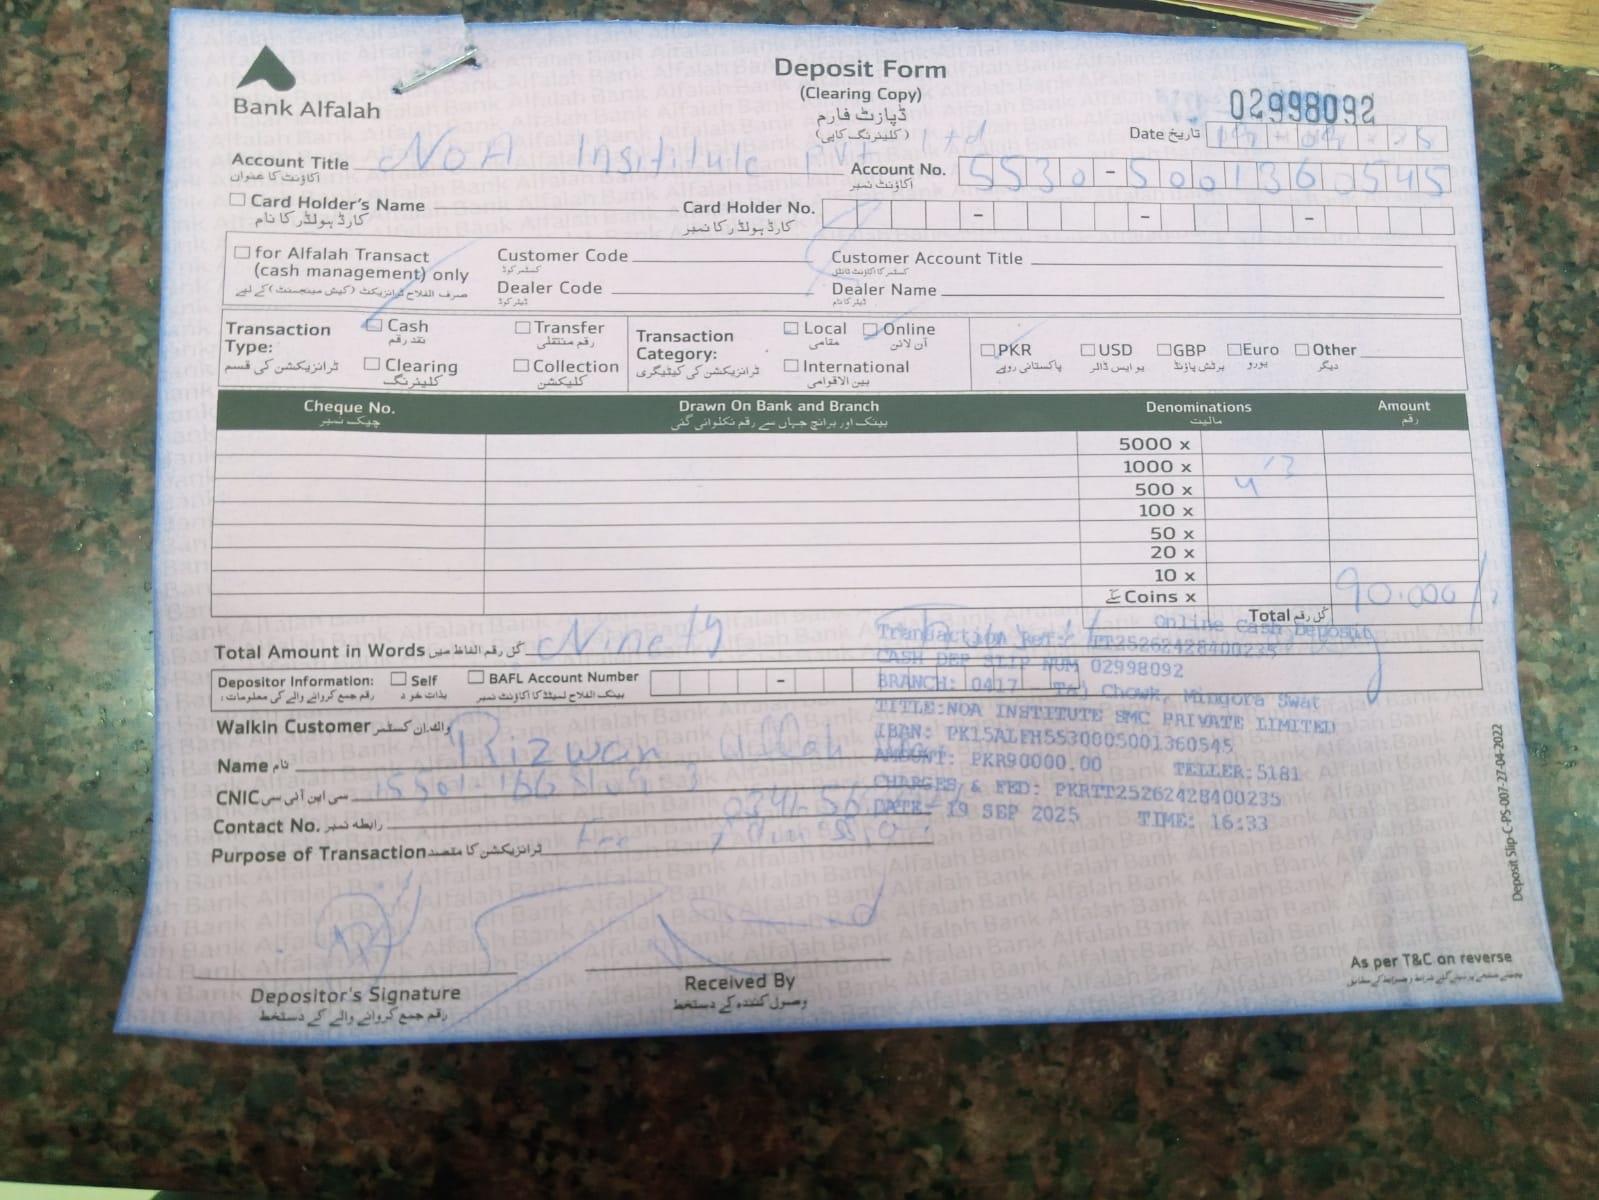 Bank Alfalah
Deposit Form
(Clearing Copy)
ڈپازٹ فارم
(کلیئرنگ کاپی)
02998092
Date تاریخ
Account Title NOA Insititute Pvt Ltd
اکاؤنٹ کا عنوان
Account No. 5530-5001360545
اکاؤنٹ نمبر
Card Holder's Name
کارڈ ہولڈر کا نام
Card Holder No.
کارڈ ہولڈر کا نمبر
for Alfalah Transact
(cash management) only
Customer Code
Customer Account Title
Dealer Code
Dealer Name
Transaction Type:
ٹرانزیکشن کی قسم
Cash
نقد رقم
Transfer
رقم منتقلی
Clearing
کلیئرنگ
Collection
کلیکشن
Transaction Category:
ٹرانزیکشن کی کیٹیگری
Local
مقامی
Online
آن لائن
International
بین الاقوامی
PKR
پاکستانی روپے
USD
یو ایس ڈالر
GBP
برٹش پاؤنڈ
Euro
یورو
Other
دیگر
Cheque No.
چیک نمبر
Drawn On Bank and Branch
بینک اور برانچ جہاں سے رقم نکلوائی گئی
Denominations
مالیت
Amount
رقم
5000 x
1000 x
500 x
100 x
50 x
20 x
10 x
سکے Coins x
Total کل رقم 90.000/
Total Amount in Words کل رقم الفاظ میں Ninety
Online Cash Deposit
Transaction Ref: TT25262428400235
CASH DEP SLIP NUM 02998092
BRANCH: 0417 - Taj Chowk, Mingora Swat
TITLE:NOA INSTITUTE SMC PRIVATE LIMITED
IBAN: PK15ALFH5530005001360545
AMOUNT: PKR90000.00 TELLER:5181
CHARGES & FED: PKRTT25262428400235
DATE: 19 SEP 2025 TIME: 16:33
Depositor Information:
رقم جمع کروانے والے کی معلومات:
Self
بذات خود
BAFL Account Number
Walkin Customer واک ان کسٹمر
Name نام Rizwan Ullah
CNIC سی این آئی سی
Contact No. رابطہ نمبر
Purpose of Transaction ٹرانزیکشن کا مقصد
Depositor's Signature
رقم جمع کروانے والے کے دستخط
Received By
وصول کنندہ کے دستخط
As per T&C on reverse
Deposit Slip-C-PS-007-27-04-2022